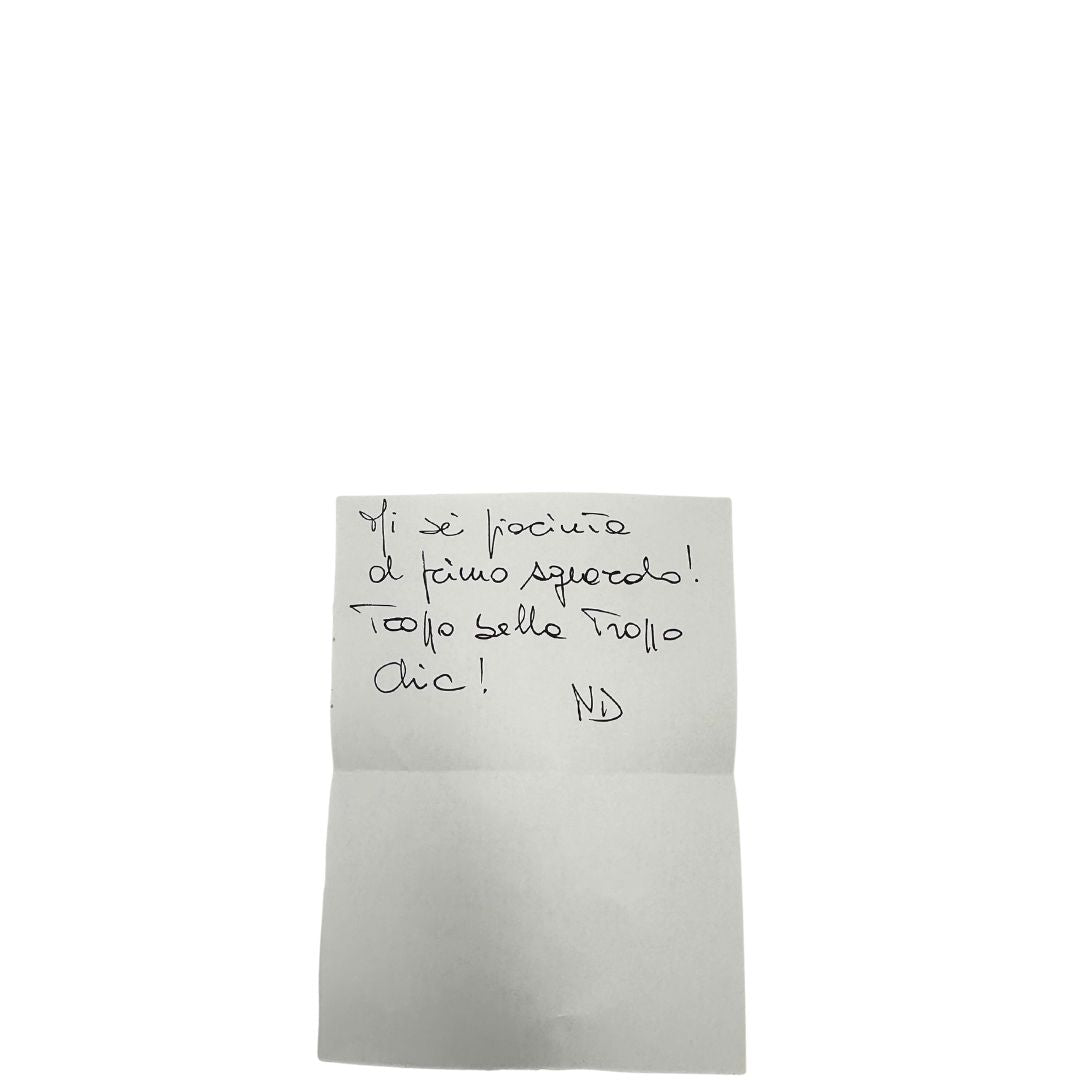 Mi sei piaciuta
al primo sguardo!
Troppo bella Troppo
chic!
ND